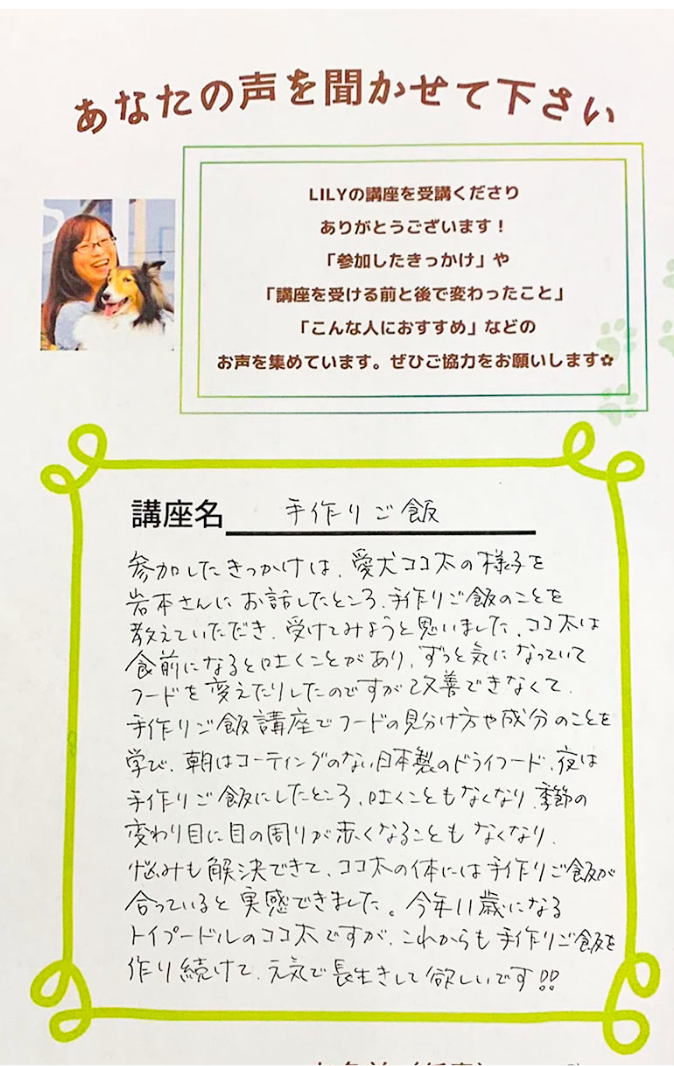 あなたの声を聞かせて下さい
LILYの講座を受講くださり
ありがとうございます！
「参加したきっかけ」や
「講座を受ける前と後で変わったこと」
「こんな人におすすめ」などの
お声を集めています。ぜひご協力をお願いします✿
講座名 手作りご飯
参加したきっかけは、愛犬ココ太の様子を
岩本さんにお話したところ、手作りご飯のことを
教えていただき、受けてみようと思いました。ココ太は
食前になると吐くことがあり、ずっと気になっていて
フードを変えたりしたのですが改善できなくて、
手作りご飯講座でフードの見分け方や成分のことを
学び、朝はコーティングのない日本製のドライフード、夜は
手作りご飯にしたところ、吐くこともなくなり、季節の
変わり目に目の周りが赤くなることもなくなり、
悩みも解決できて、ココ太の体には手作りご飯が
合っていると実感できました。今年11歳になる
トイプードルのココ太ですが、これからも手作りご飯を
作り続けて、元気で長生きして欲しいです!!